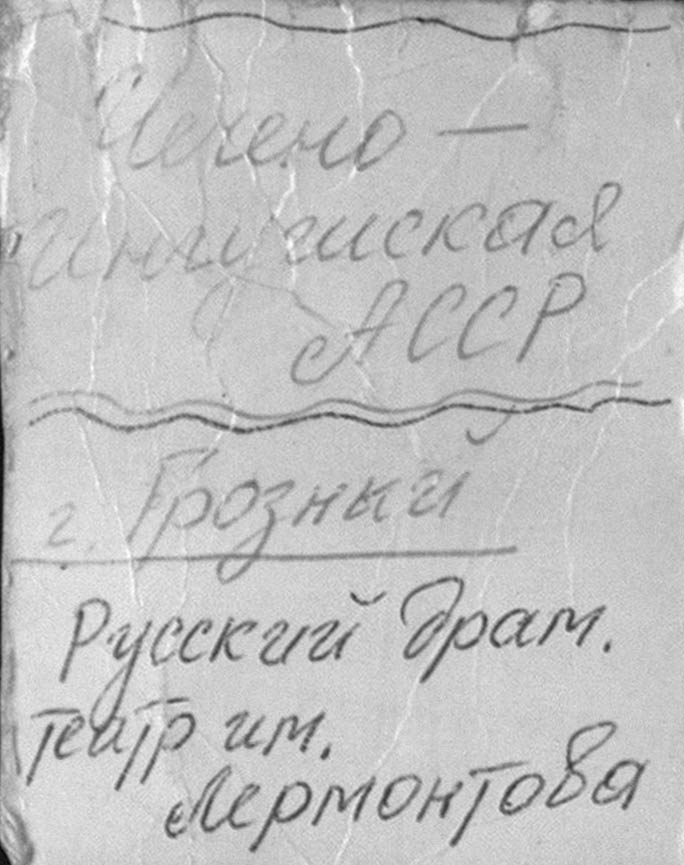 Чечено —
ингушская
АССР
г. Грозный
Русский драм.
театр им.
Лермонтова